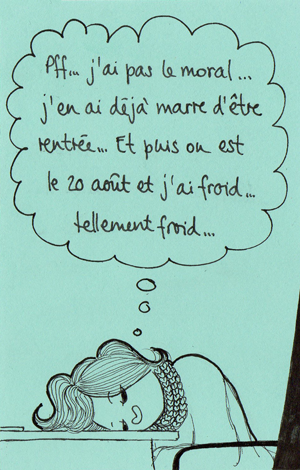 Pff... j'ai pas le moral...
j'en ai déjà marre d'être
rentrée... Et puis on est
le 20 août et j'ai froid...
tellement froid...